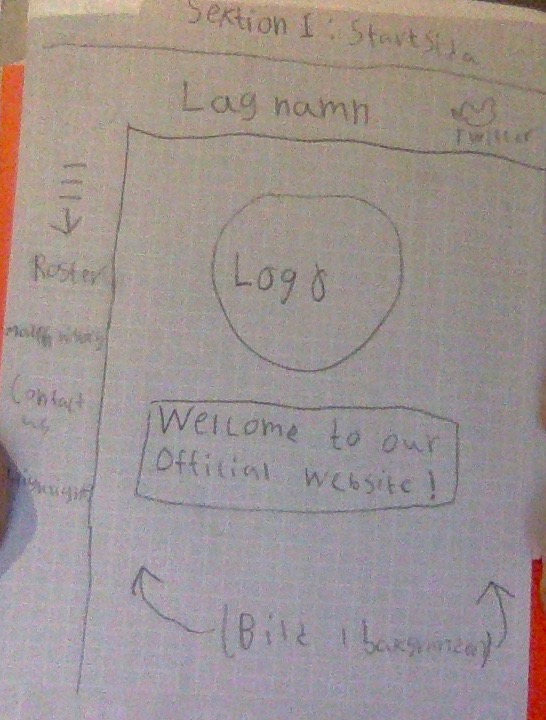 Sektion I : Startsida
Lag namn
Twitter
Roster
Match history
Contact
us
Logo
Welcome to our
Official Website!
(Bild i bakgrunden)